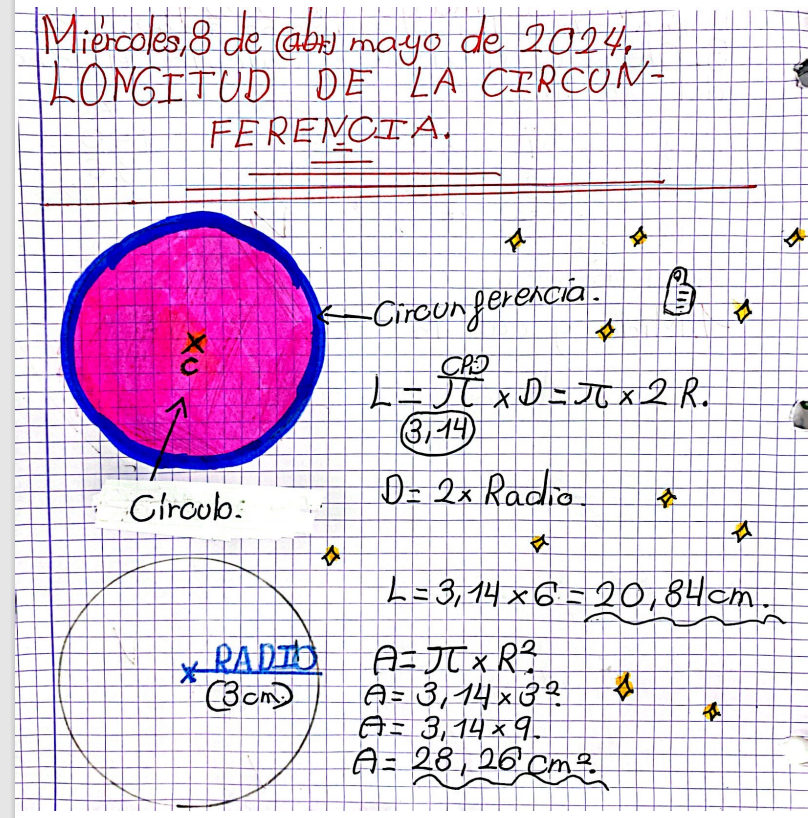 Miércoles, 8 de (abri) mayo de 2024.
LONGITUD DE LA CIRCUN-
FERENCIA.
Circunferencia.
C
(PI)
L = π x D = π x 2 R.
3,14
D = 2 x Radio.
Círculo.
L = 3,14 x 6 = 20,84 cm.
RADIO
(3 cm)
A = π x R².
A = 3,14 x 3².
A = 3,14 x 9.
A = 28,26 cm².